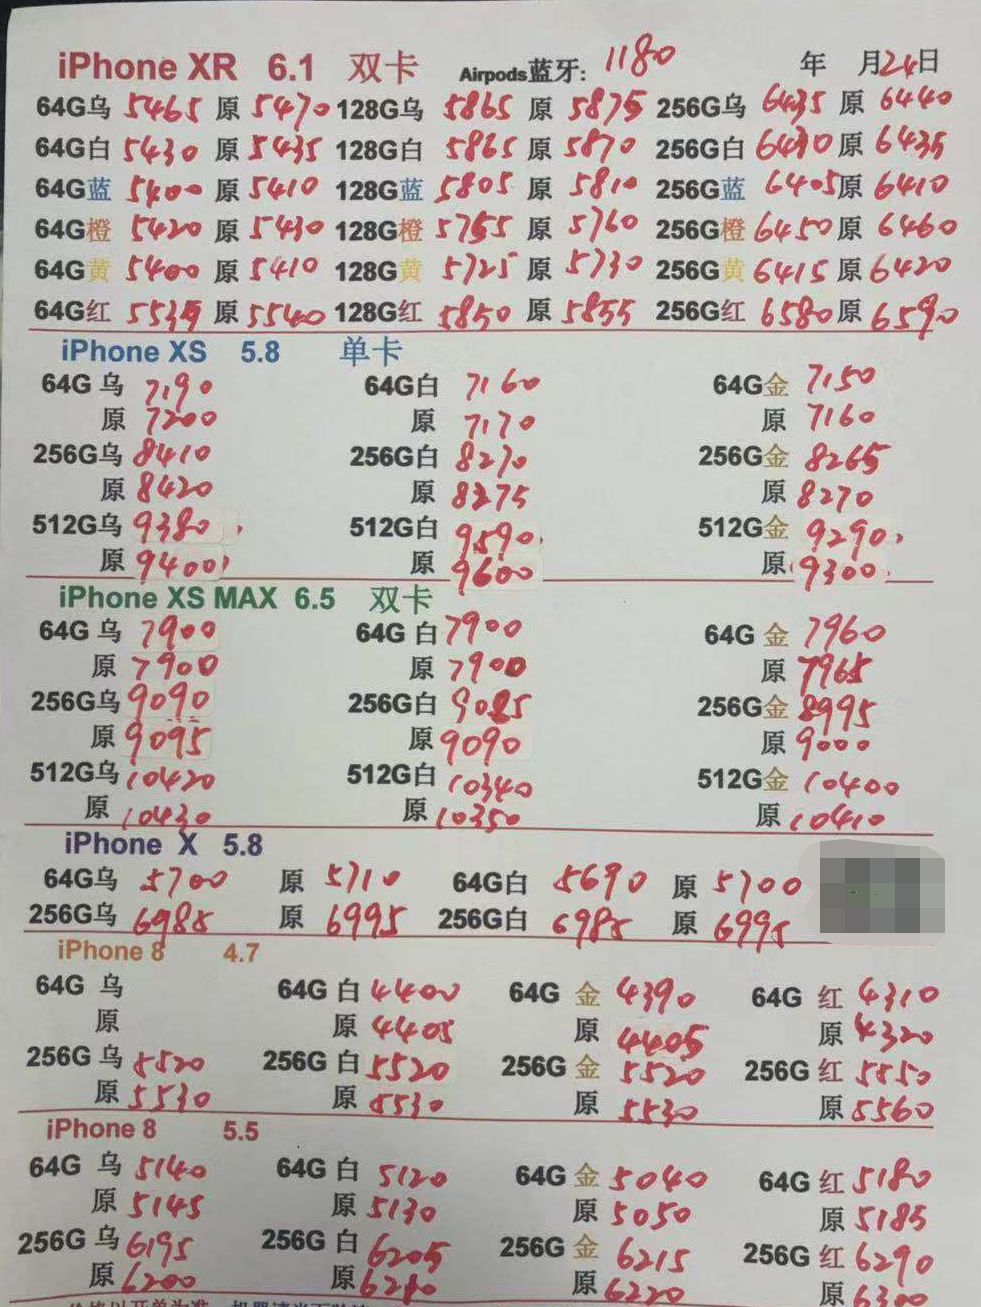 iPhone XR 6.1 双卡 Airpods蓝牙: 1180 年 月24日
64G乌 5465 原 5470 128G乌 5865 原 5875 256G乌 6435 原 6440
64G白 5430 原 5435 128G白 5865 原 5870 256G白 6430 原 6435
64G蓝 5400 原 5410 128G蓝 5805 原 5810 256G蓝 6405 原 6410
64G橙 5420 原 5430 128G橙 5755 原 5760 256G橙 6450 原 6460
64G黄 5400 原 5410 128G黄 5725 原 5730 256G黄 6415 原 6420
64G红 5535 原 5540 128G红 5850 原 5855 256G红 6580 原 6590
iPhone XS 5.8 单卡
64G 乌 7190 64G白 7160 64G金 7150
原 7200 原 7170 原 7160
256G乌 8410 256G白 8270 256G金 8265
原 8420 原 8275 原 8270
512G乌 9380 512G白 9590 512G金 9290
原 9400 原 9600 原 9300
iPhone XS MAX 6.5 双卡
64G 乌 7900 64G 白 7900 64G 金 7960
原 7900 原 7900 原 7965
256G乌 9090 256G白 9085 256G金 8995
原 9095 原 9090 原 9000
512G乌 10420 512G白 10340 512G金 10400
原 10430 原 10350 原 10410
iPhone X 5.8
64G乌 5700 原 5710 64G白 5690 原 5700
256G乌 6985 原 6995 256G白 6985 原 6995
iPhone 8 4.7
64G 乌 64G 白 4400 64G 金 4390 64G 红 4310
原 原 4405 原 4405 原 4320
256G 乌 5520 256G 白 5520 256G 金 5520 256G 红 5550
原 5530 原 5530 原 5530 原 5560
iPhone 8 5.5
64G 乌 5140 64G 白 5120 64G 金 5040 64G 红 5180
原 5145 原 5130 原 5050 原 5185
256G 乌 6195 256G 白 6205 256G 金 6215 256G 红 6290
原 6200 原 原 6220 原 6300